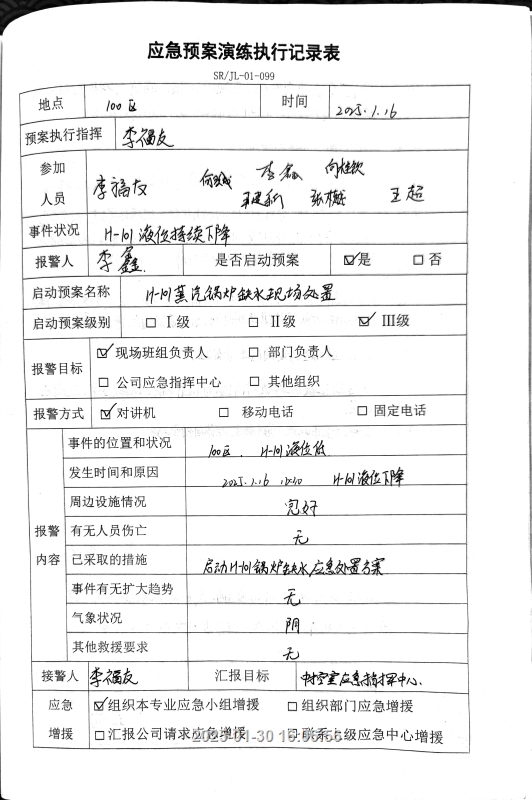 应急预案演练执行记录表
SR/JL-01-099
地点 100区 时间 2025.1.16
预案执行指挥 李福友
参加人员 李福友 李鑫 王建新 张彬 王超
事件状况 H-101液位持续下降
报警人 李鑫. 是否启动预案 ☑是 □否
启动预案名称 H-101蒸汽锅炉缺水现场处置
启动预案级别 □Ⅰ级 □Ⅱ级 ☑Ⅲ级
报警目标 ☑现场班组负责人 □部门负责人
□公司应急指挥中心 □其他组织
报警方式 ☑对讲机 □移动电话 □固定电话
报警内容
事件的位置和状况 100区. H-101液位低
发生时间和原因 2025.1.16 H-101液位下降
周边设施情况 完好
有无人员伤亡 无
已采取的措施 启动H-101锅炉缺水应急处置方案
事件有无扩大趋势 无
气象状况 阴
其他救援要求 无
接警人 李福友 汇报目标 中控室应急指挥中心.
应急增援 ☑组织本专业应急小组增援 □组织部门应急增援
□汇报公司请求应急增援 □联系上级应急中心增援